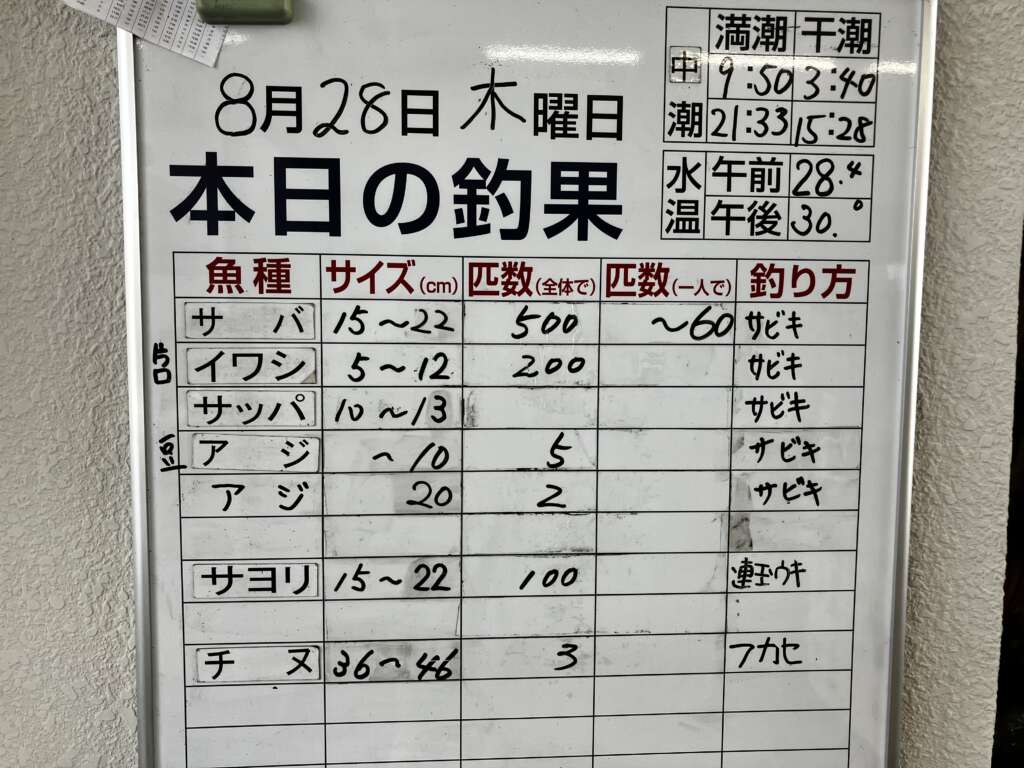 8月28日 木曜日
本日の釣果
満潮 干潮
中潮 9:50 3:40
21:33 15:28
水温 午前 28.4
午後 30.0
魚種 サイズ(cm) 匹数(全体で) 匹数(一人で) 釣り方
サバ 15～22 500 ～60 サビキ
片口 イワシ 5～12 200 サビキ
サッパ 10～13 サビキ
豆 アジ ～10 5 サビキ
アジ 20 2 サビキ
サヨリ 15～22 100 連玉ウキ
チヌ 36～46 3 フカセ